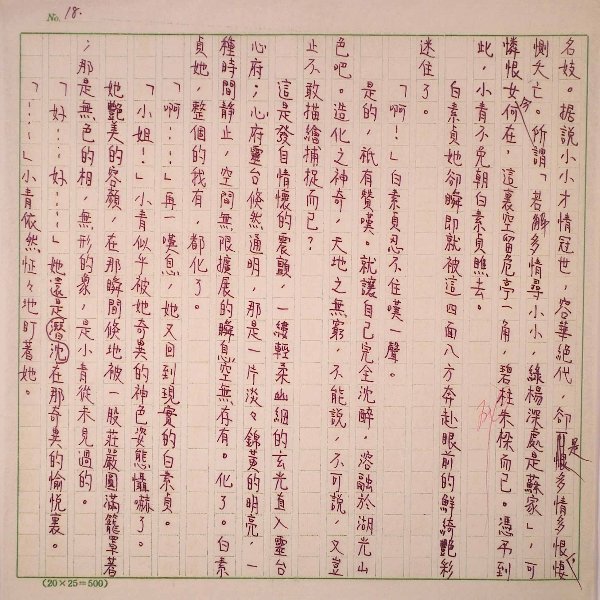 No. 18.
名妓。据說小小才情冠世,容華絕代,卻是多情多恨,
惻夭亡。所謂「若解多情尋小小,綠楊深處是蘇家」,可
憐恨女何在,這裏空留危亭一角,碧柱朱樑而已。憑弔到
此,小青不免朝白素貞瞧去。
白素貞她卻瞬即就被這四面八方奔赴眼前的鮮綺艷彩
迷住了。
「啊!」白素貞忍不住嘆一聲。
是的,祇有贊嘆。就讓自己完全沈醉,溶融於湖光山
色吧。造化之神奇,天地之無窮,不能說,不可說,又豈
止不敢描繪捕捉而已?
這是發自情懷的震顫,一縷輕柔幽細的玄光直入靈台
心府;心府靈台倏然通明,那是一片淡々錦黃的明亮,一
種時間靜止,空間無限擴展的瞬息空無存有。化了。白素
貞她,整個的我有,都化了。
「啊……」再一嘆息,她又回到現實的白素貞。
「小姐!」小青似乎被她奇異的神色姿態懾嚇了。
她艷美的容顏,在那瞬間倏地被一股莊嚴圓滿籠罩著
;那是無色的相,無形的象,是小青從未見過的。
「好……好……」她還是潛沈在那奇異的愉悅裏。
「……」小青依然怔々地盯著她。
(20×25=500)